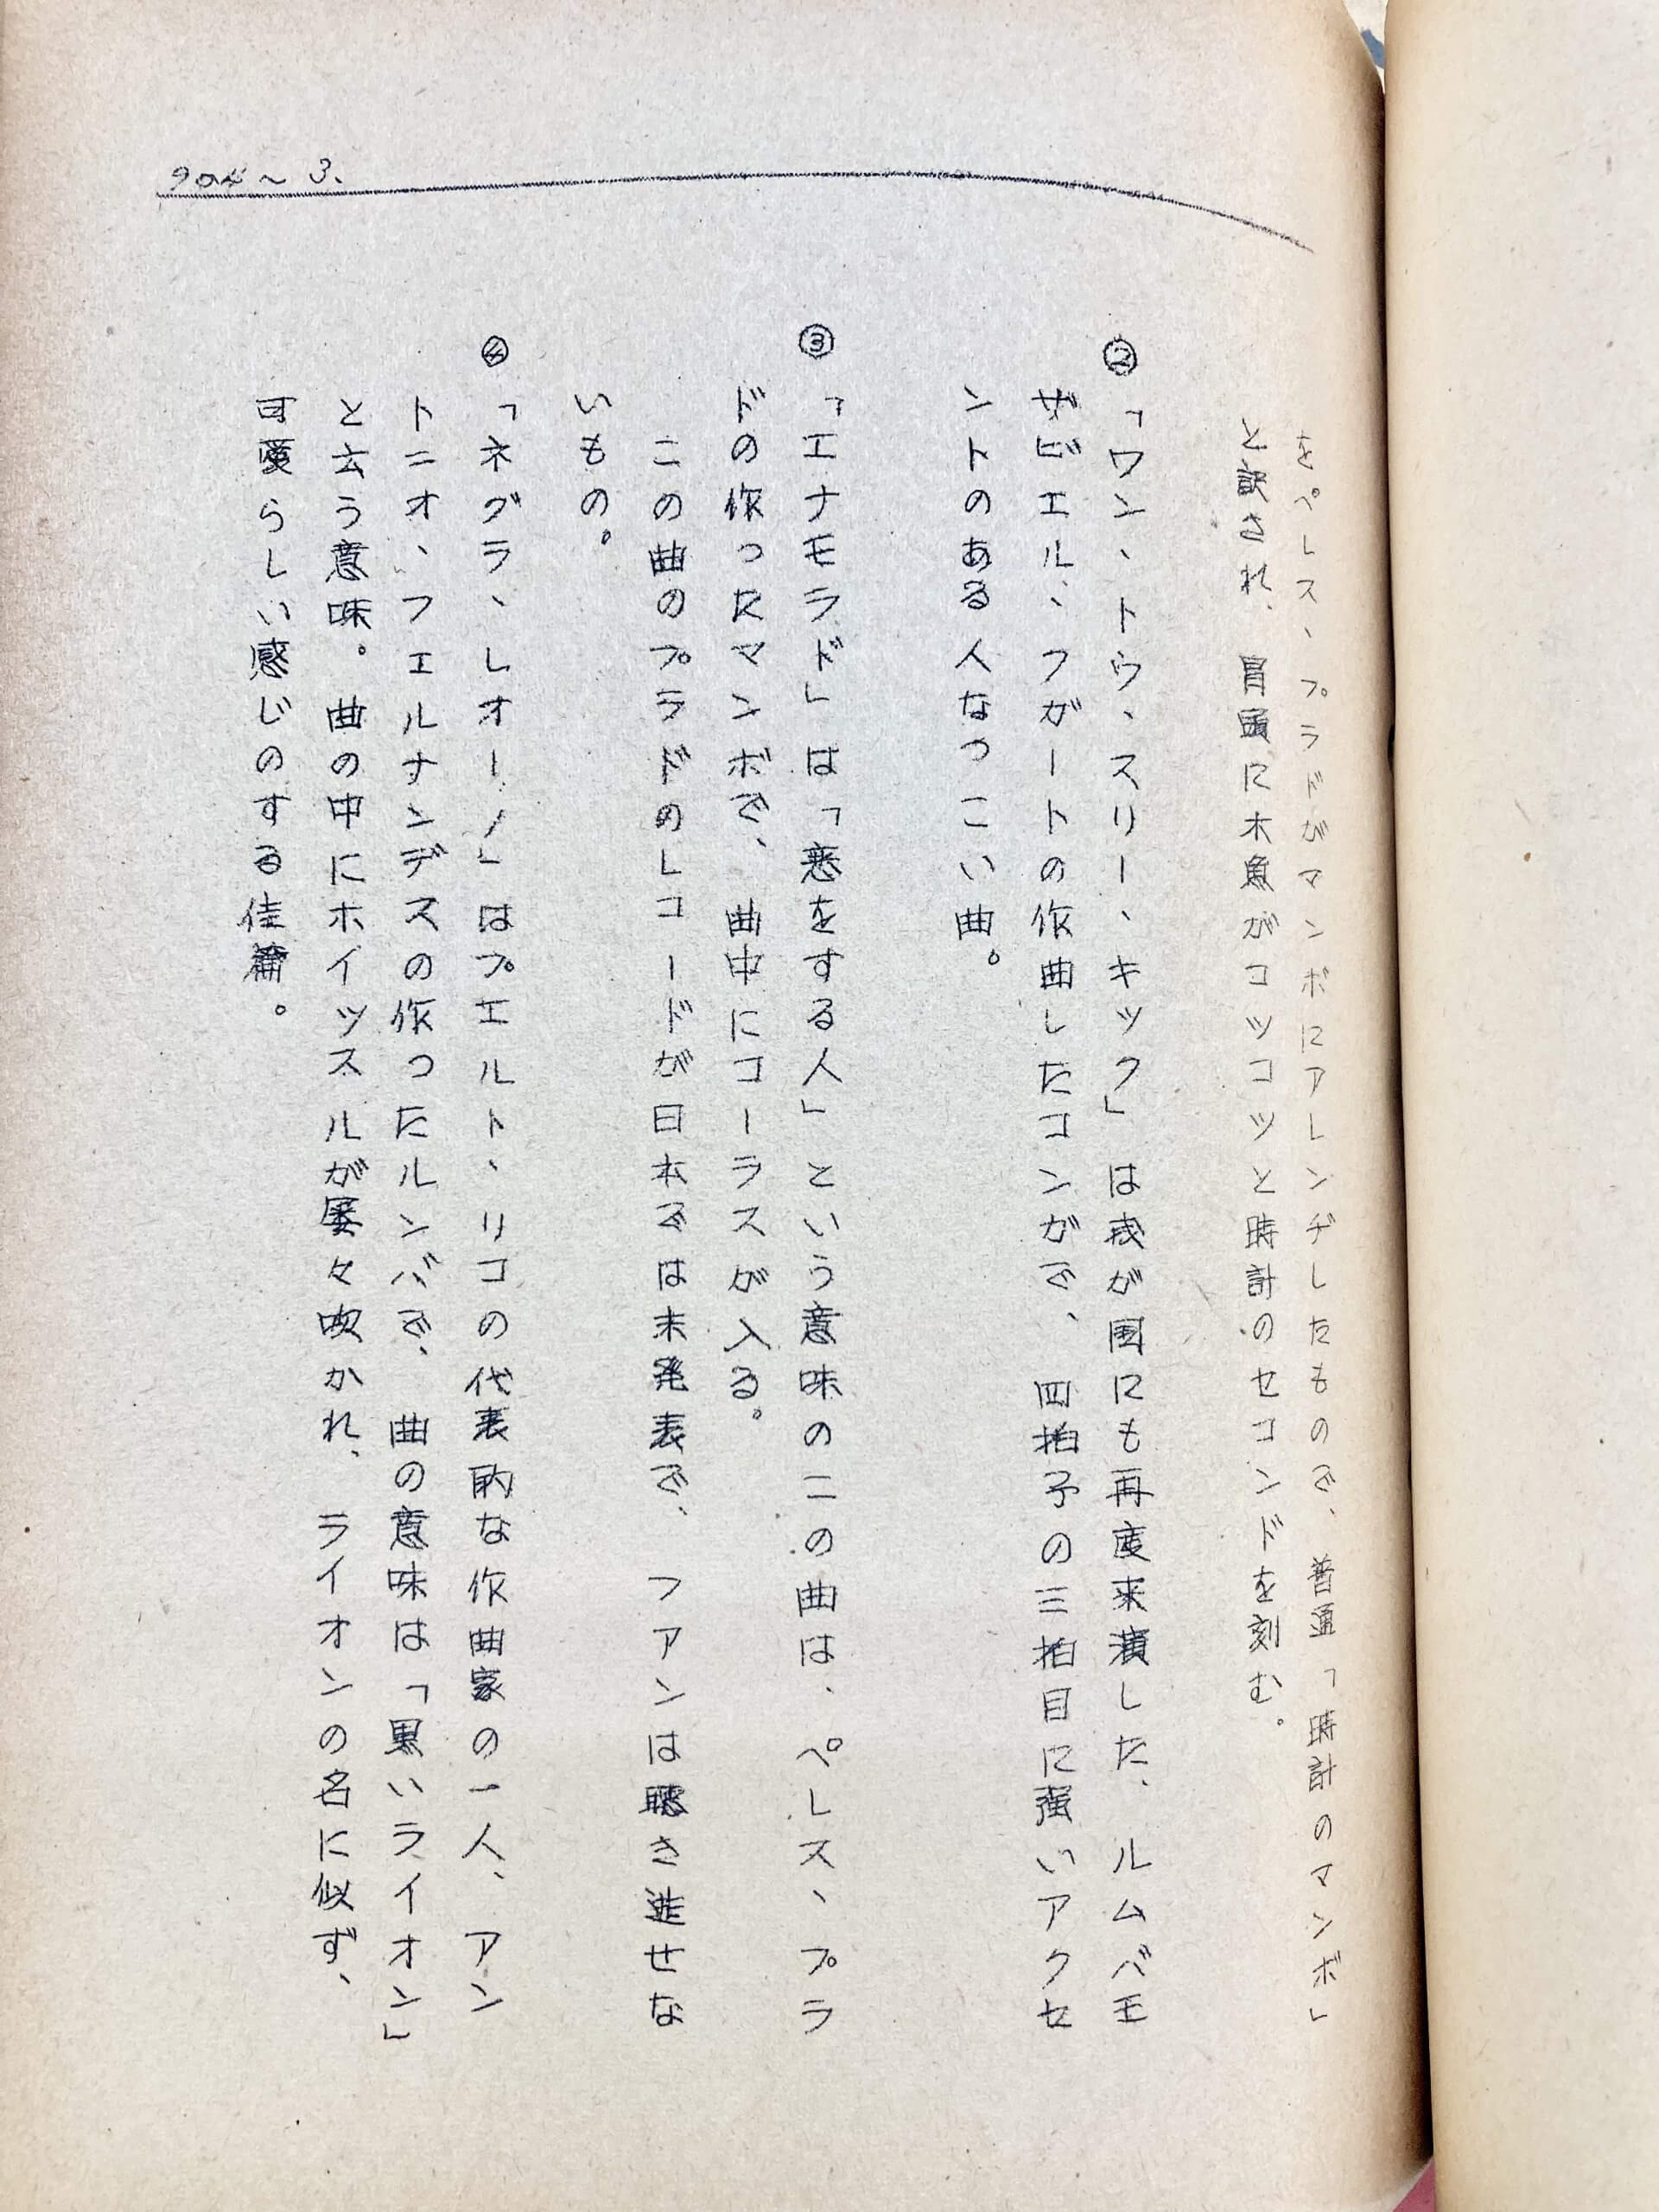 904～3.
をペレス、プラドがマンボにアレンヂしたもので、普通「時計のマンボ」
と訳され、冒頭に木魚がコツコツと時計のセコンドを刻む。
②「ワン、トウ、スリー、キック」は我が国にも再度来演した、ルムバモ
ザビエル、フガートの作曲したコンガで、四拍子の三拍目に強いアクセ
ントのある人なつこい曲。
③「エナモラド」は「恋をする人」という意味の二の曲は、ペレス、プラ
ドの作ったマンボで、曲中にコーラスが入る。
この曲のプラドのレコードが日本では未発表で、フアンは聴き逃せな
いもの。
④「ネグラ、レオーノ」はプエルト、リコの代表的な作曲家の一人、アン
トニオ、フェルナンデスの作つたルンバで、曲の意味は「黒いライオン」
と云う意味。曲の中にホイッスルが屡々吹かれ、ライオンの名に似ず、
可愛らしい感じのする佳篇。